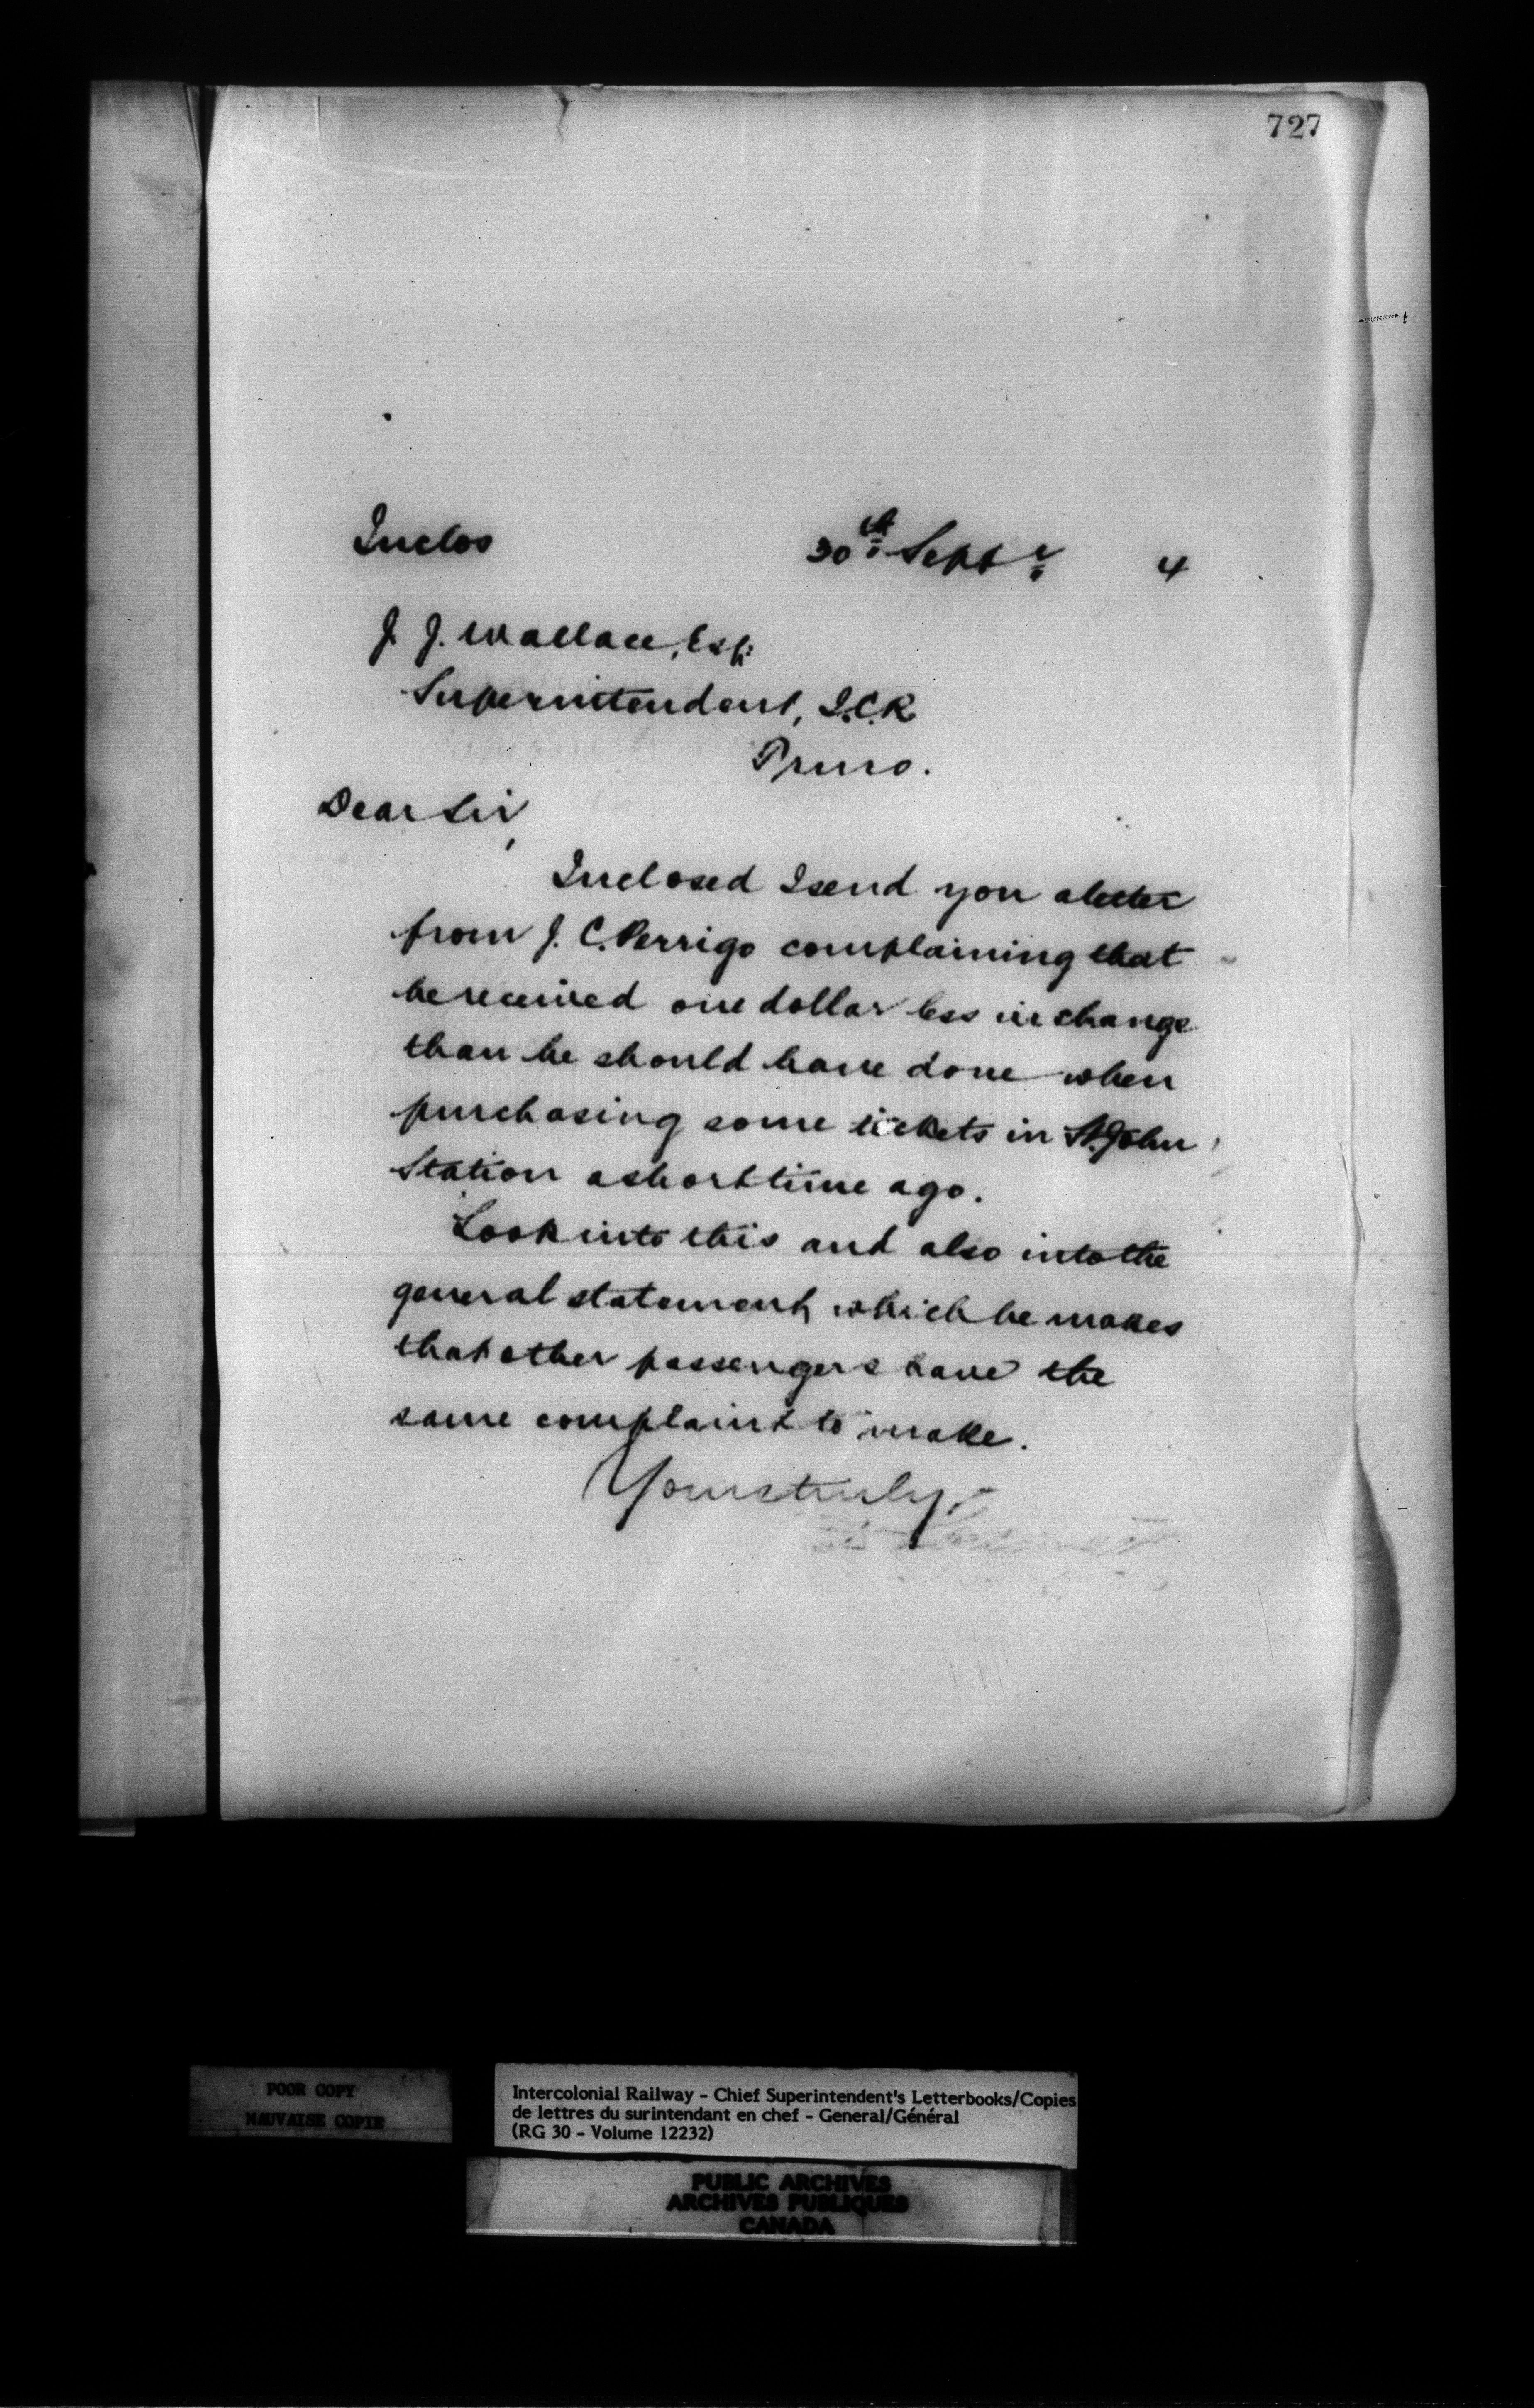 727
Inclos
30th Septr 4
J. J. Wallace, Esq.
Superintendent, I.C.R
Truro.
Dear Sir,
Inclosed I send you a letter
from J. C. Perrigo complaining that
he received one dollar less in change
than he should have done when
purchasing some tickets in St. John
Station a short time ago.
Look into this and also into the
general statement which he makes
that other passengers have the
same complaint to make.
Yours truly,
POOR COPY
MAUVAISE COPIE
Intercolonial Railway - Chief Superintendent's Letterbooks/Copies
de lettres du surintendant en chef - General/Général
(RG 30 - Volume 12232)
PUBLIC ARCHIVES
ARCHIVES PUBLIQUES
CANADA